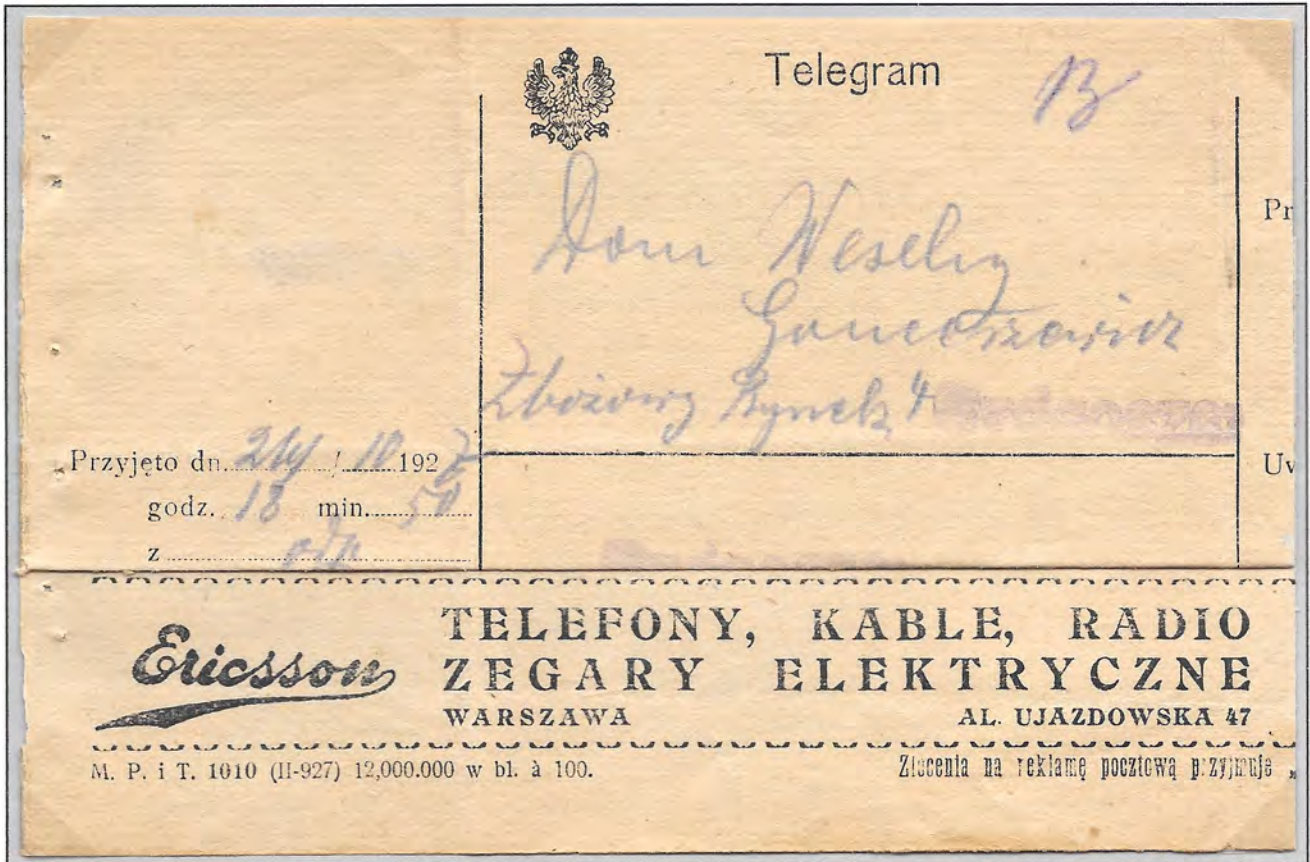 Telegram
B
Dom Weselny
Zbożowy Rynek 4
Pr
Przyjęto dn. 24 / 10 1927
godz. 18 min. 50
z
Uw
Ericsson
TELEFONY, KABLE, RADIO
ZEGARY ELEKTRYCZNE
WARSZAWA AL. UJAZDOWSKA 47
M. P. i T. 1010 (II-927) 12,000.000 w bl. à 100.
Zlecenia na reklamę pocztową przyjmuje „